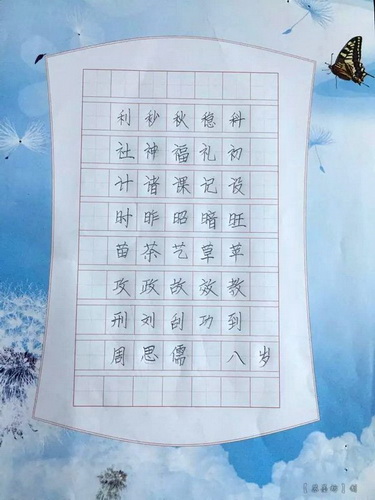 利秒秋稳科
社神福礼初
计诸课记设
时昨昭暗旺
苗茶艺草苹
攻政故效教
刑刘刮功到
周思儒 八岁